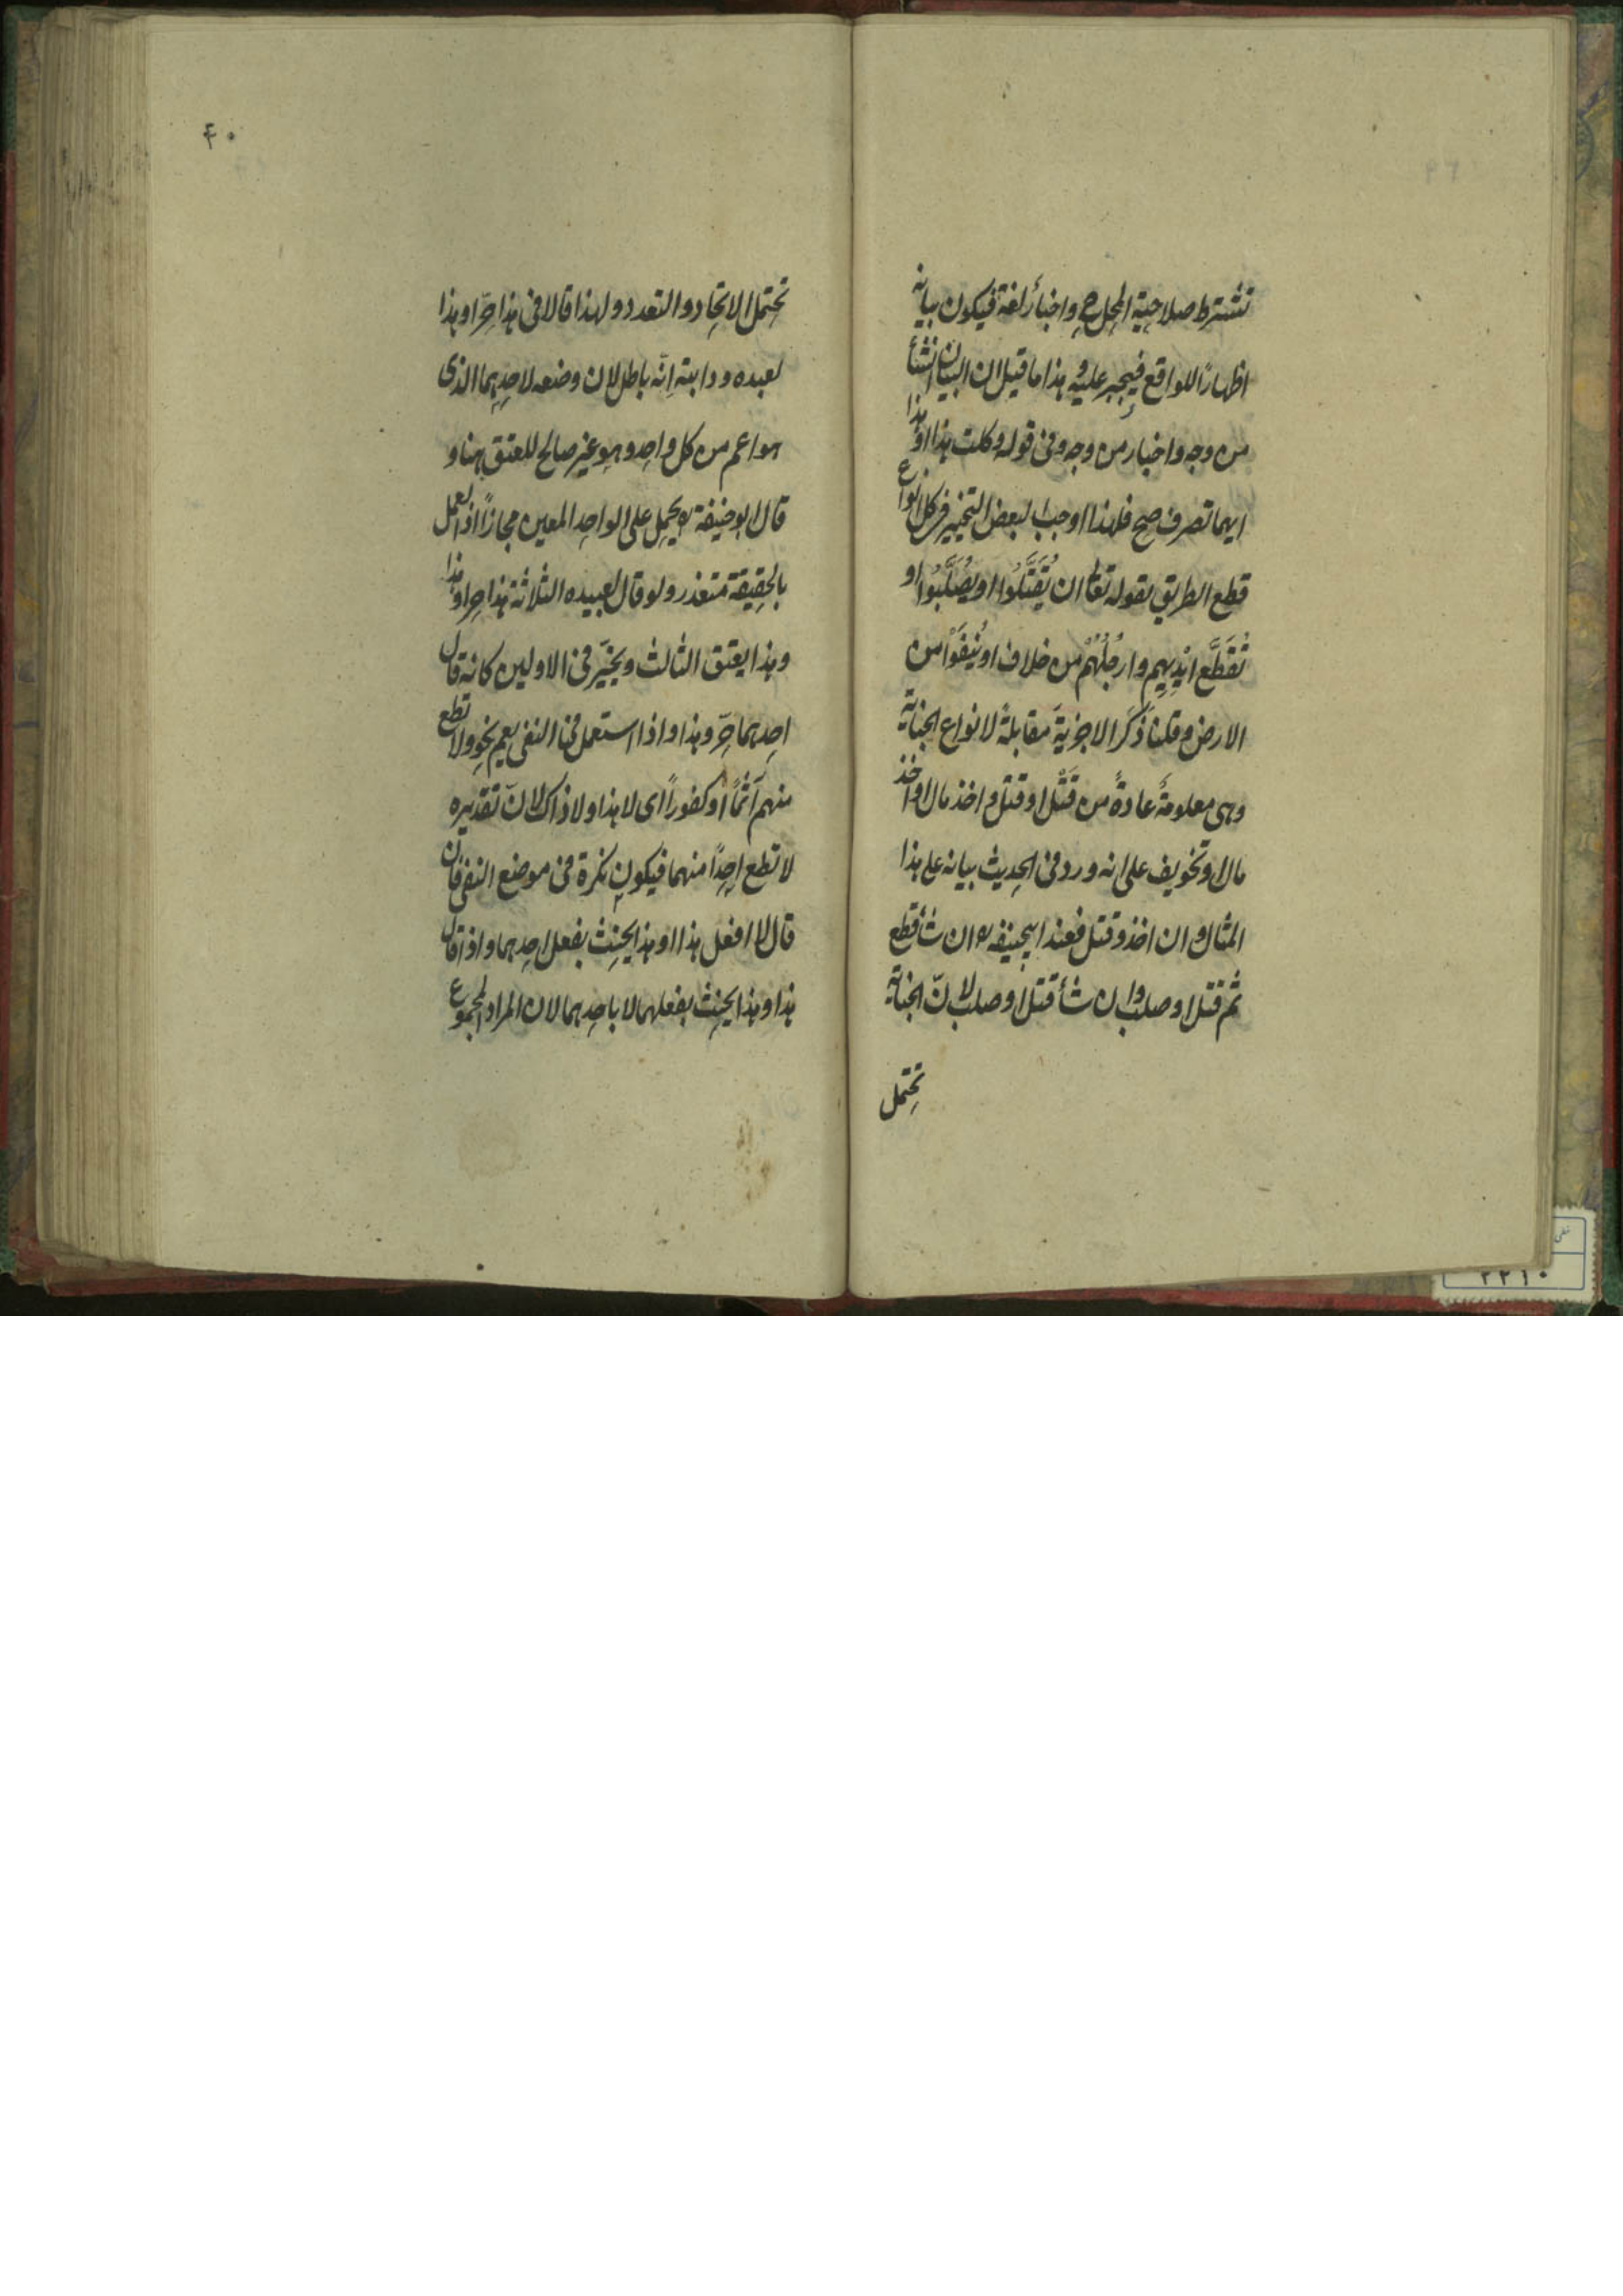 تشترط صلاحية المحل ح واخبار لغة فيكون بيانه
اظهارًا للواقع فيجبر عليه و هذا ما قيل ان البيان انشأ
من وجه واخبار من وجه وفى قوله وكلت هذا او هذا
ايهما تصرف صح فلهذا اوجب البعض التخيير فى كل انواع
قطع الطريق بقوله تعالى ان يُقَتَّلُوا او يُصَلَّبُوا او
تُقَطَّع ايْدِيهِم وارجُلُهُم من خلاف او يُنفَوْا من
الارض وقلنا ذَكَرَ الاجزيةَ مقابلةً لانواع الجناية
وهى معلومةٌ عادةً من قَتْل او قتل واخذ مال او اخذ
مال او تخويف على انه ورد فى الحديث بيانه على هذا
المثال وان اخذ وقتل فعند ابيحنيفه ره ان شأ قطع
ثم قتل او صلب وان شأ قتل او صلب لانّ الجناية
تحتمل
۴۰
تحتمل الاتحاد والتعدد ولهذا قالا فى هذا حرّ او هذا
لعبده ودابته اِنّه باطل لان وضعه لاحدِهِما الذى
هو اعم من كل واحد وهو غير صالح للعتق هنا و
قال ابو حنيفة ره يحمل على الواحد المعين مجازًا اذ العمل
بالحقيقة متعذر ولو قال لعبيده الثلاثة هذا حر او هذا
وهذا يعتق الثالث ويخيّر فى الاولين كانه قال
احدهما حرّ وهذا واذا استعمل فى النفى يعم نحو ولا تطع
منهم آثمًا او كفورًا اى لا هذا ولا ذاك لانّ تقديره
لا تطع احدًا منهما فيكون نكرة فى موضع النفى فان
قال لا افعل هذا او هذا يحنث بفعل احدهما واذا قال
هذا وهذا يحنث بفعلهما لا باحدهما لان المراد المجموع
۲۲۱۰